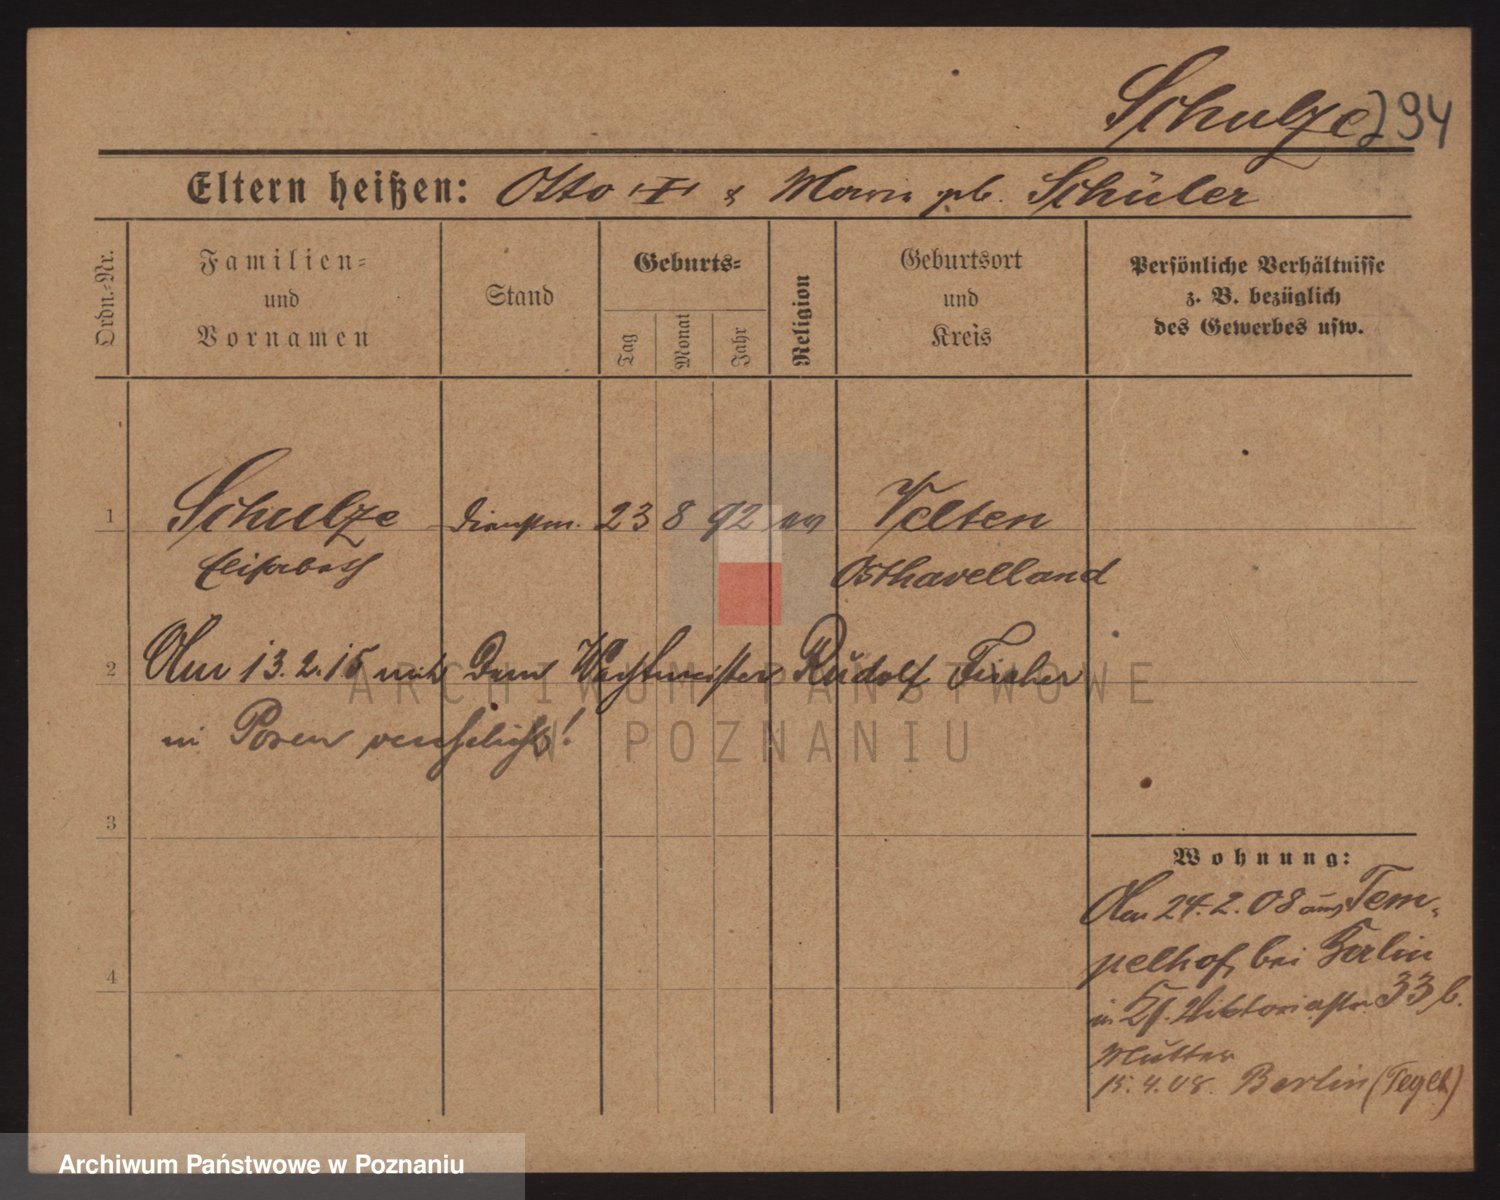 Schulze 294
Eltern heißen: Otto & Marie geb. Schüler
Ordn.-Nr.
Familien- und Vornamen
Stand
Geburts-
Tag
Monat
Jahr
Religion
Geburtsort und Kreis
Persönliche Verhältnisse
z. B. bezüglich
des Gewerbes usw.
1 Schulze Dienstm. 23 8 92 ev Velten
Elisabeth Osthavelland
2 Am 13.2.15 mit dem Wachtmeister Rudolf Fischer
in Posen verehelicht!
3
Wohnung:
Am 24.2.08 aus Tem-
pelhof, bei Berlin
4
in Viktoriastr. 33 b.
Mutter
15.4.08. Berlin (Tegel)
ARCHIWUM PAŃSTWOWE
W POZNANIU
Archiwum Państwowe w Poznaniu